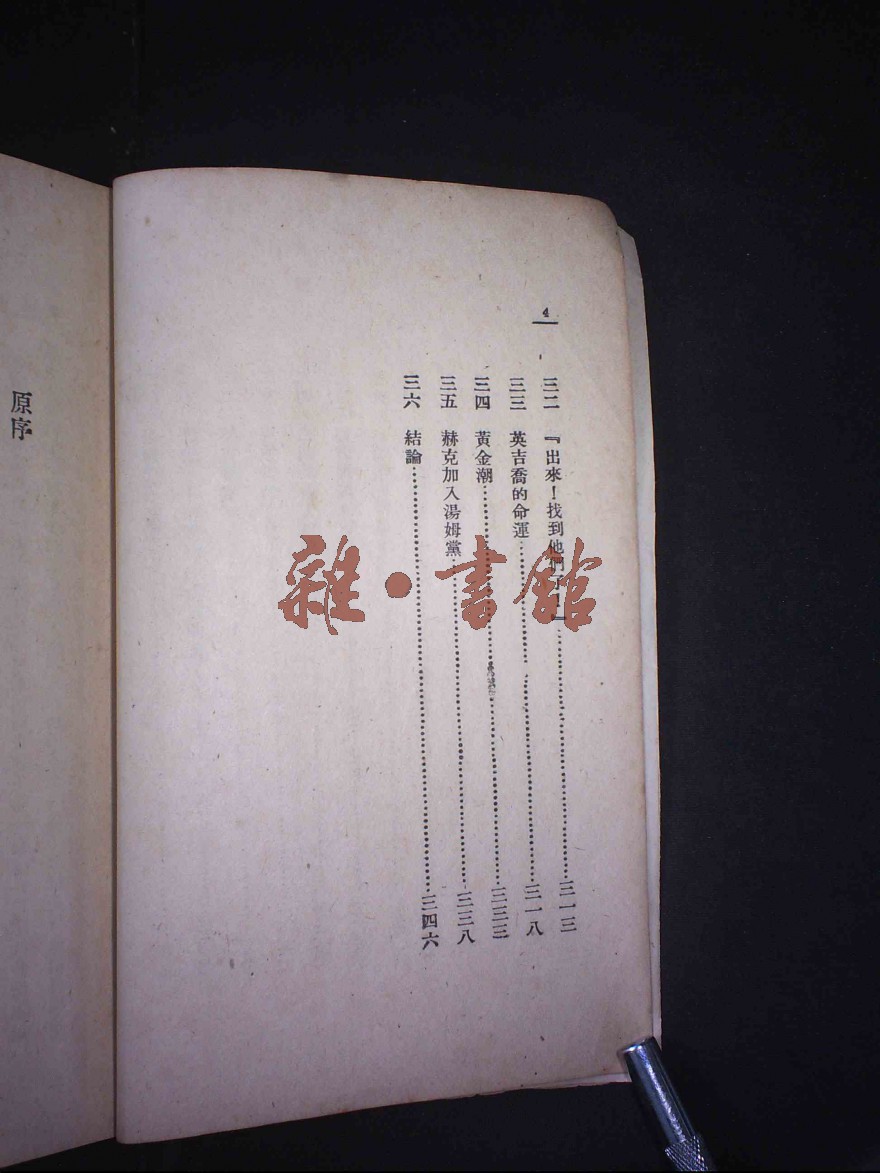 4
三二　『出來！找到他們了！』……三一三
三三　英吉喬的命運……三一八
三四　黃金潮……三三三
三五　赫克加入湯姆黨……三三八
三六　結論……三四六
原序
雜·書館